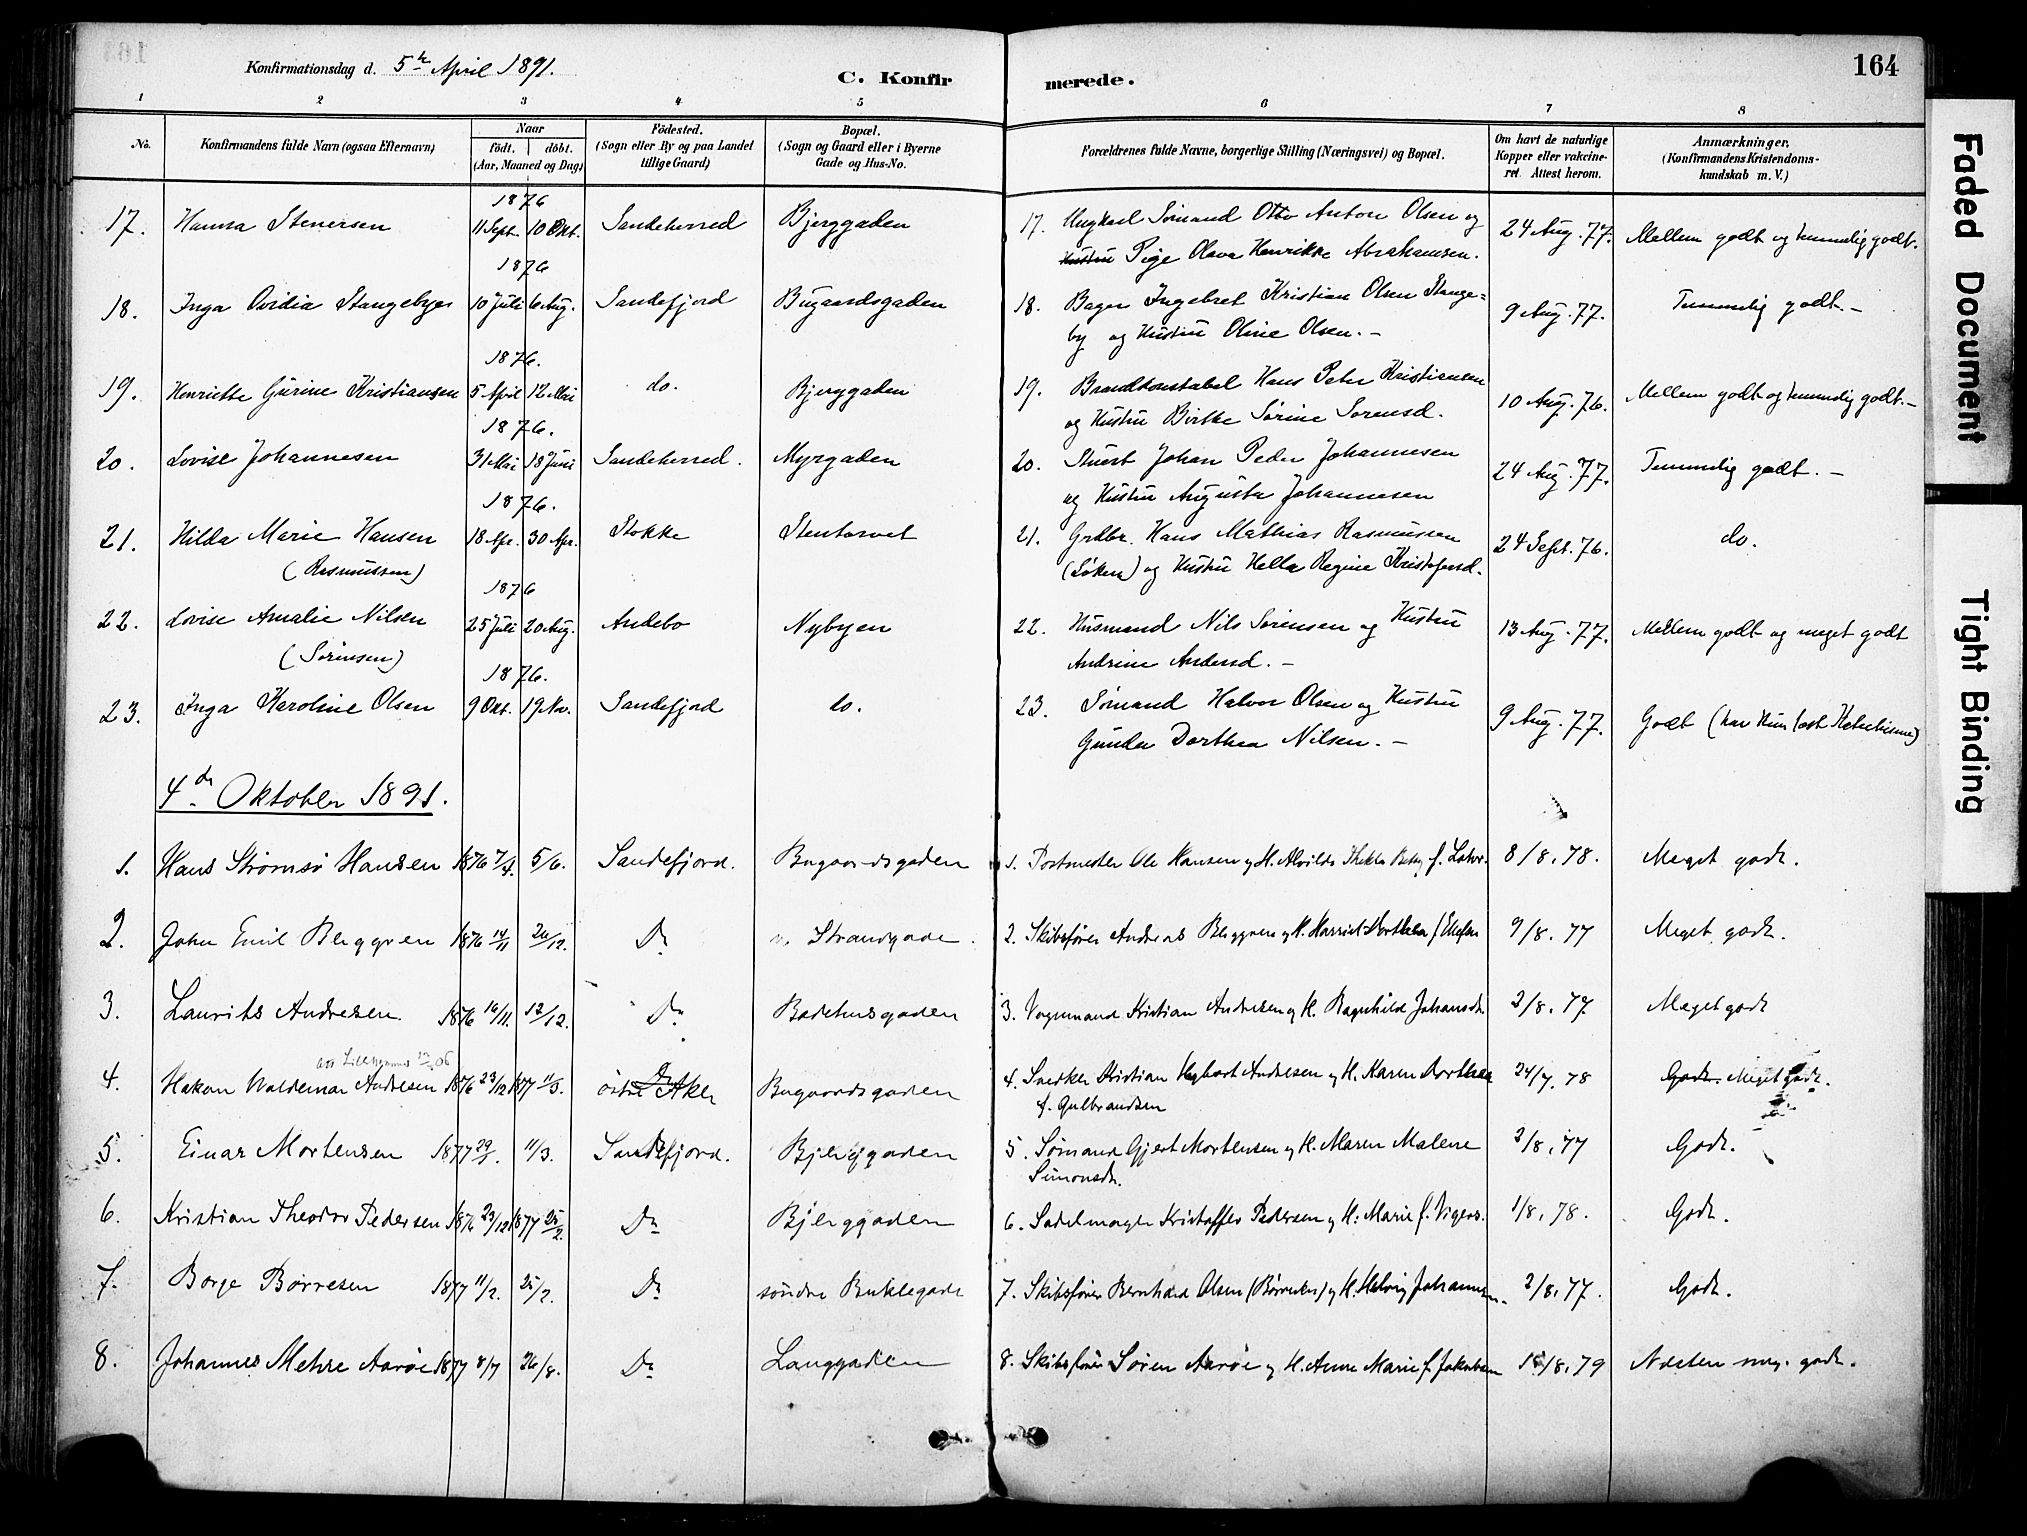 Konfirmationsdag d. 5te April 1891.
C. Konfirmerede.
164
1 2 3 4 5 6 7 8
No.
Konfirmandens fulde Navn (ogsaa Efternavn)
Naar
födt. döbt.
(Aar, Maaned og Dag)
Födested.
(Sogn eller By og paa Landet tillige Gaard)
Bopæl.
(Sogn og Gaard eller i Byerne Gade og Hus-No.
Forældrenes fulde Navne, borgerlige Stilling (Næringsvei) og Bopæl.
Om havt de naturlige Kopper eller vakcineret. Attest herom.
Anmærkninger.
(Konfirmandens Kristendomskundskab m. V.)
1876
17. Hanna Stenersen 11 Sept. 10 Okt. Sandeherred Bjerggaden 17. Ungkarl Sömand Otto Anton Olsen og 24 Aug. 77. Mellem godt og temmelig godt.
Hustru Pige Olava Henrikke Abrahamsen.
1876
18. Inga Ovidia Stangebye 10 Juli 6 Aug. Sandefjord Bugaardsgaden 18. Bager Ingebret Kristian Olsen Stange= 9 Aug. 77. Temmelig godt. –
by og Hustru Oline Olsen. –
1876.
19. Henriette Gurine Kristiansen 5 April 12 Mai do. Bjerggaden 19. Brandkonstabel Hans Peter Kristiansen 10 Aug. 76. Mellem godt og temmelig godt. –
og Hustru Birthe Sörine Sorensd.
1876.
20. Lovise Johannesen 31 Mai 18 Juni Sandeherred. Myrgaden 20. Stuert Johan Peder Johannesen 24 Aug. 77. Temmelig godt. –
og Hustru Augusta Johannesen
1876.
21. Hilda Marie Hansen 18 Apr. 30 Apr. Stokke Stentorvet 21. Grdbr. Hans Mathias Rasmussen 24 Sept. 76. do.
(Rasmussen) (Löken) og Hustru Hella Regine Kristofersd.
1876
22. Lovise Amalie Nilsen 25 Juli 20 Aug. Andebo Nybyen 22. Husmand Nils Sörensen og Hustru 13 Aug. 77. Mellem godt og meget godt
(Sörensen) Andrine Andersd. –
1876.
23. Inga Karoline Olsen 9 Okt. 19 Nov. Sandefjord do. 23. Sömand Halvor Olsen og Hustru 9 Aug. 77. Godt (har kun læst Katekisme)
Gunda Dorthea Nilsen. –
4de Oktober 1891.
1. Hans Strömsö Hansen 1876 7/4. 5/6. Sandefjord. Bugaardsgaden 1. Postmester Ole Hansen og H. Alvilda Thekla Betsy f. 8/8. 78. Meget godt.
2. John Emil Berggren 1876 14/11 26/12. Do Strandgade. 2. Skibsfører Andreas Berggren og H. Harriet Dorthea f. 9/8. 77 Meget godt.
3. Laurits Andresen. 1876 16/11. 12/12. Do Badehusgaden 3. Vognmand Kristian Andresen og H. Ragnhild Johansdt. 2/8. 77. Meget godt
att Lillehammer 06
4. Hakon Waldemar Andresen 1876 23/12 1877 11/3. Do östre Aker Bugaardsgaden 4. Snedker Kristian Andresen og H. Karen Dorthea 24/7. 78 Godt. Meget godt.
f. Gulbrandsen
5. Einar Mortensen 1877 29/1. 11/3. Sandefjord. Bjerggaden 5. Sømand Gjert Mortensen og H. Maren Malene 2/8. 77 Godt.
Simonsdt.
6. Kristian Theodor Pedersen 1876 23/12 1877 25/2. Do Bjerggaden 6. Sadelmager Kristoffer Pedersen og H: Marie f. 1/8. 78. Godt.
7. Borge Børresen 1877 11/2. 25/2. Do søndre 7. Skibsfører Bernhard Olsen (Børresen) og H. Helvig Johannesen. 2/8. 77. Godt.
8. Johannes Mehre Aarøe 1877 8/7 26/8. Do Langgaden 8. Skibsfører Søren Aarøe og H. Anne Marie f. Jakobsen 79 Næsten meg. godt.
Faded Document
Tight Binding